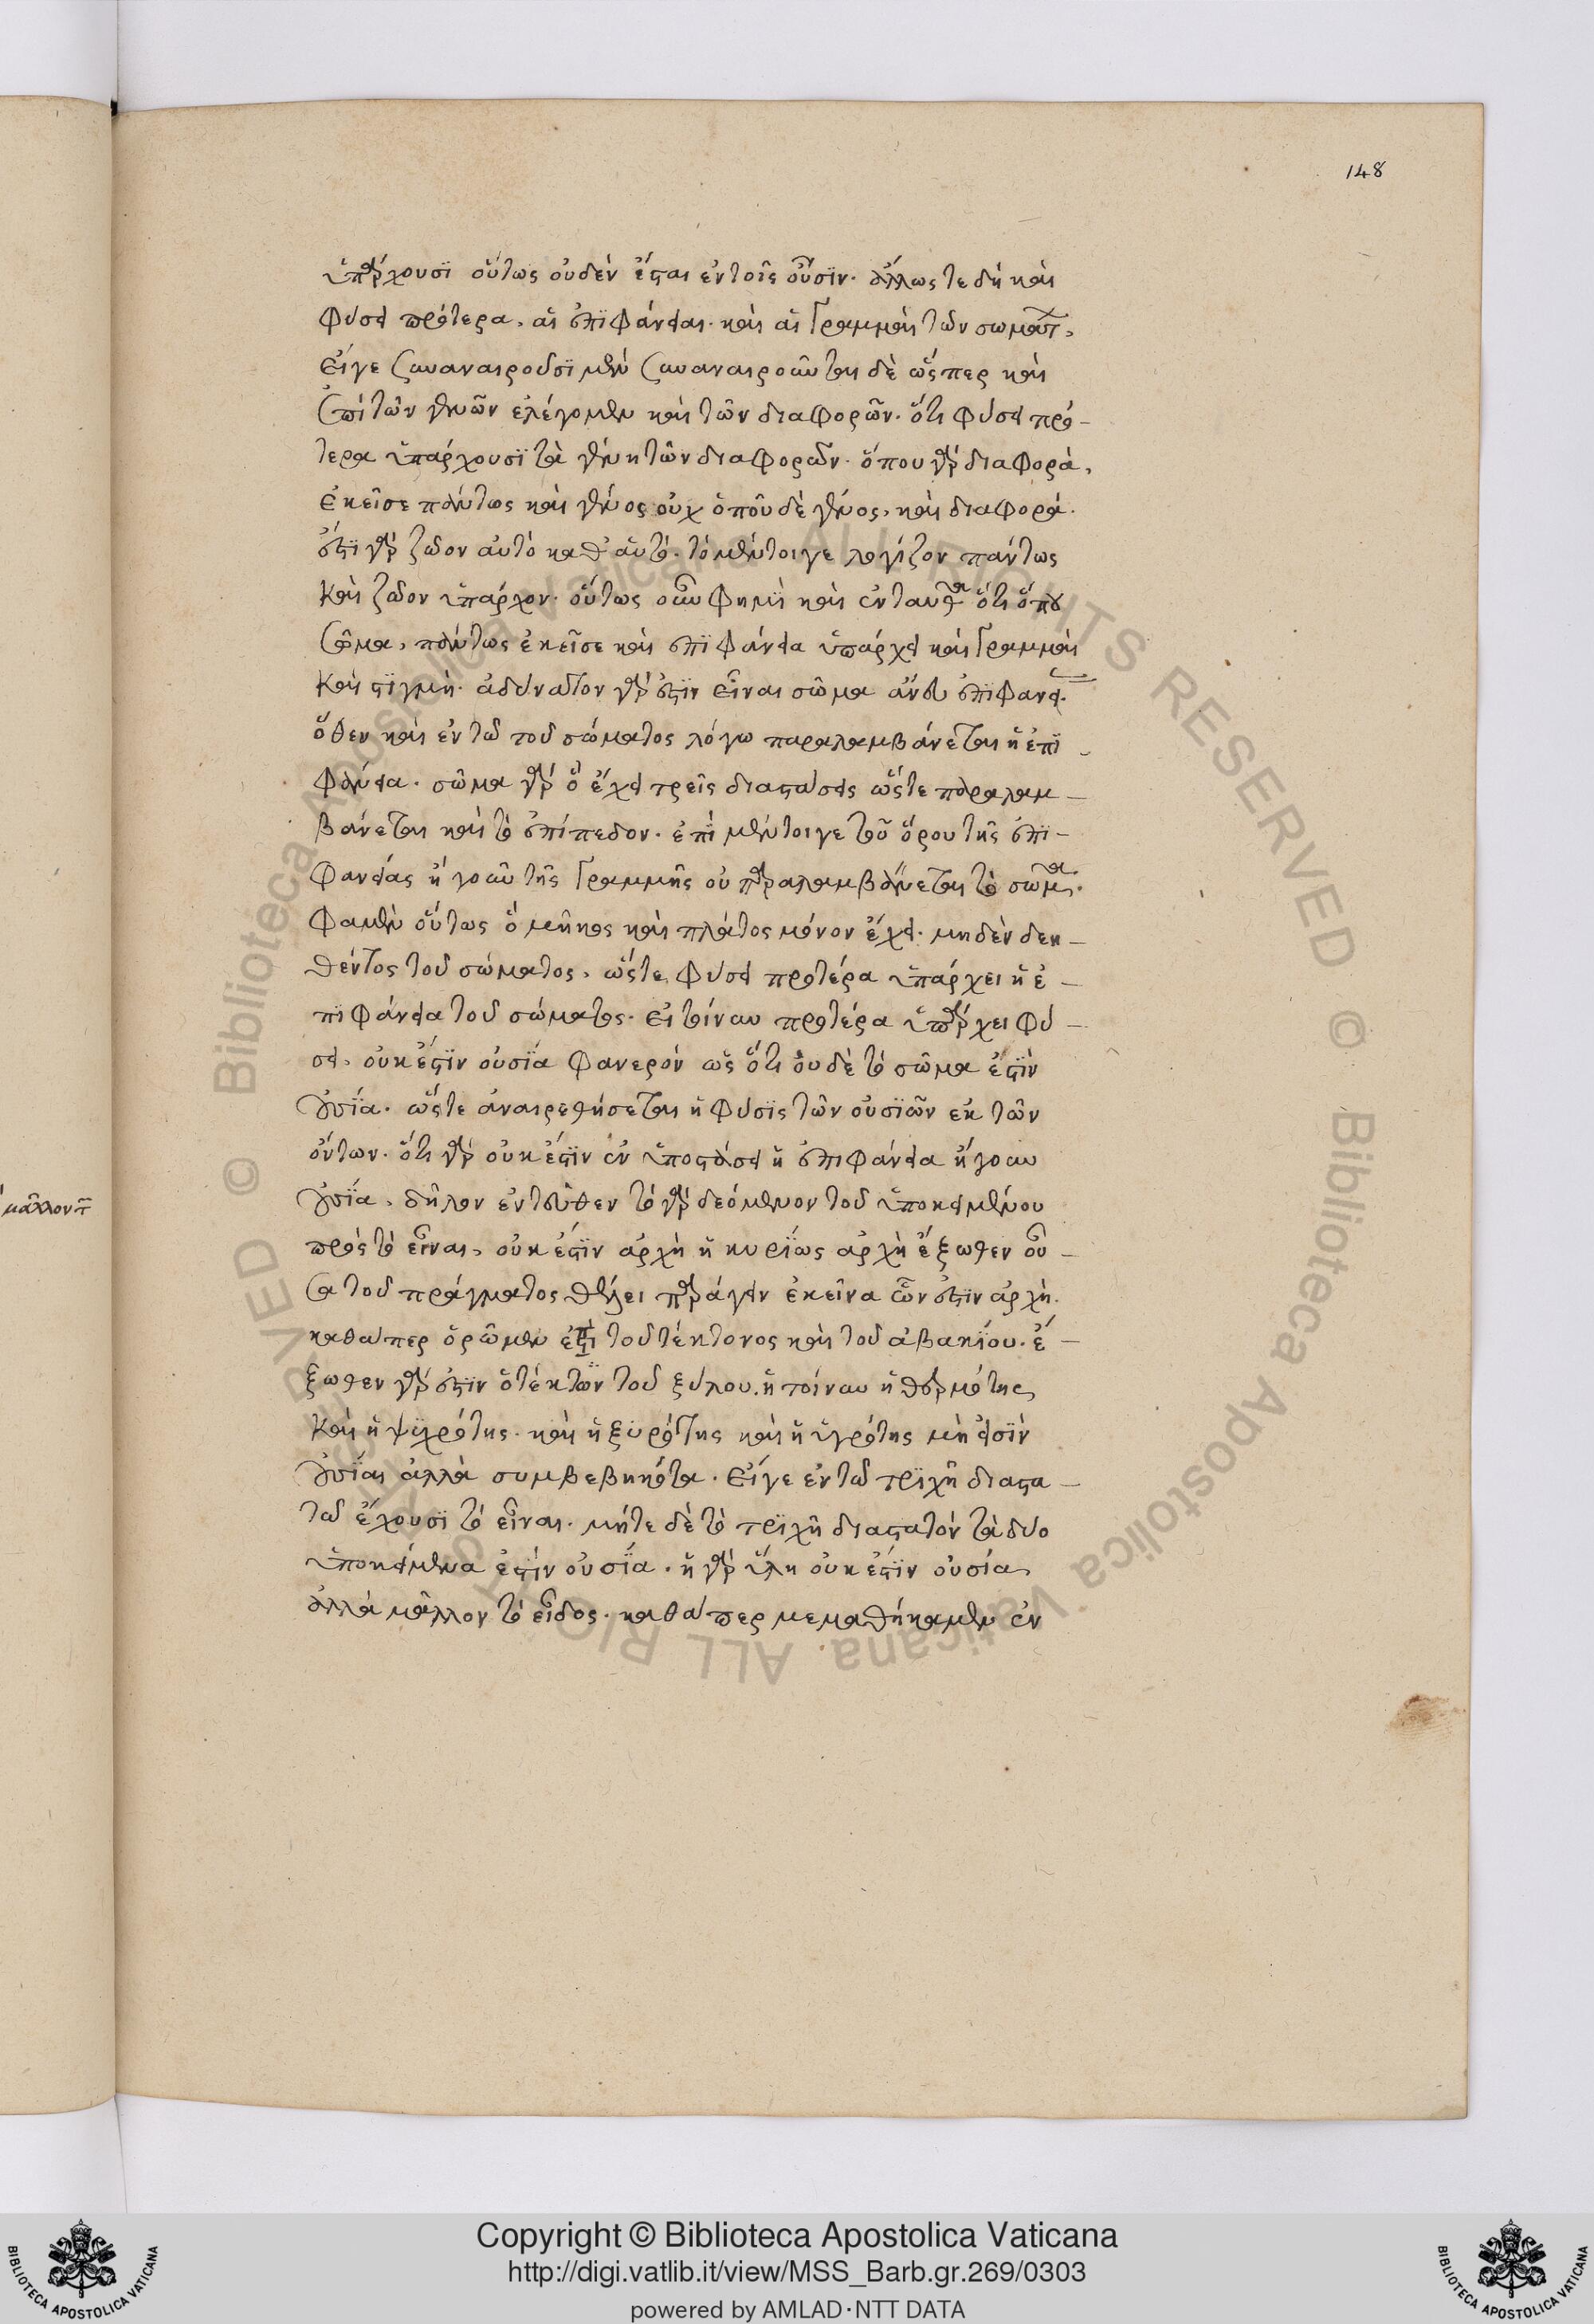 148
ὑπάρχουσϊ οὕτως οὐδὲν ἔσται ἐν τοῖς οὖσϊν. ἄλλως τε δὴ καὶ
φύσει πρότερα, αἱ ἐπϊφάνειαι. καὶ αἱ γραμμαὶ τῶν σωμάτων,
εἴγε συναναιροῦσϊ μὲν συναναιροῦνται δὲ ὥσπερ καὶ
ἐπὶ τῶν γενῶν ἐλέγομεν καὶ τῶν διαφορῶν. ὅτι φύσει πρό-
τερα ὑπάρχουσϊ τὰ γένη τῶν διαφορῶν. ὅπου γὰρ διαφορὰ,
ἐκεῖσε πάντως καὶ γένος οὐχ ὅπου δὲ γένος, καὶ διαφορά.
ἔστϊ γὰρ ζῶον αὐτὸ καθ' αὑτό. τὸ μέντοιγε λογίζον πάντως
καὶ ζῶον ὑπάρχον. οὕτως οὖν φημὶ καὶ ἐνταῦθα ὅτι ὅπου
σῶμα, πάντως ἐκεῖσε καὶ ἐπϊφάνεια ὑπάρχει καὶ γραμμαὶ
καὶ στϊγμή. ἀδύνατον γάρ ἐστϊν εἶναι σῶμα ἄνευ ἐπϊφανείας.
ὅθεν καὶ ἐν τῶ τοῦ σώματος λόγω παραλαμβάνεται ἡ ἐπϊ-
φάνεια. σῶμα γὰρ ὃ ἔχει τρεῖς διαστάσεις ὥστε παραλαμ-
βάνεται καὶ τὸ ἐπίπεδον. ἐπὶ μέντοιγε τοῦ ὅρου τῆς ἐπϊ-
φανείας ἤγουν τῆς γραμμῆς οὐ παραλαμβάνεται τὸ σῶμα.
φαμὲν οὕτως ὃ μῆκος καὶ πλάτος μόνον ἔχει. μηδὲν δεη-
θέντος τοῦ σώματος, ὥστε φύσει προτέρα ὑπάρχει ἡ ἐ-
πιφάνεια τοῦ σώματος. εἰ τοίνυν προτέρα ὑπάρχει φύ-
σει, οὐκ ἔστϊν οὐσΐα φανερὸν ὡς ὅτι οὐδὲ τὸ σῶμα ἐστϊν
οὐσΐα. ὥστε ἀναιρεθήσεται ἡ φύσϊς τῶν οὐσϊῶν ἐκ τῶν
ὄντων. ὅτι γὰρ οὐκ ἔστϊν ἐν ὑποστάσει ἡ ἐπιφάνεια ἤγουν
οὐσΐα, δῆλον ἐντεῦθεν τὸ γὰρ δεόμενον τοῦ ὑποκειμένου
πρὸς τὸ εἶναι, οὐκ ἔστϊν ἀρχὴ ἡ κυρΐως ἀρχὴ ἔξωθεν οὖ-
σα τοῦ πράγματος θέλει παράγειν ἐκεῖνα ὧν ἐστϊν ἀρχὴ.
καθάπερ ὁρῶμεν ἐπὶ τοῦ τέκτονος καὶ τοῦ ἀβακΐου. ἔ-
ξωθεν γάρ ἐστϊν ὁ τέκτων τοῦ ξύλου. ἡ τοίνυν ἡ θερμότης
καὶ ἡ ψϋχρότης. καὶ ἡ ξϋρότης καὶ ἡ ὑγρότης μὴ εἰσϊν
οὐσΐαι ἀλλὰ συμβεβηκότα. εἴγε ἐν τῶ τρϊχῆ διαστα-
τῶ ἔχουσϊ τὸ εἶναι. μήτε δὲ τὸ τρϊχῆ διαστατὸν τὰ δύο
ὑποκείμενα ἐστὶν οὐσΐα. ἡ γὰρ ὕλη οὐκ ἔστϊν οὐσία,
ἀλλὰ μᾶλλον τὸ εἶδος. καθάπερ μεμαθήκαμεν ἐν
μᾶλλον
Copyright © Biblioteca Apostolica Vaticana
http://digi.vatlib.it/view/MSS_Barb.gr.269/0303
powered by AMLAD·NTT DATA
BIBLIOTECA APOSTOLICA VATICANA
BIBLIOTECA APOSTOLICA VATICANA
© Biblioteca Apostolica Vaticana. ALL RIGHTS RESERVED © Biblioteca Apostolica Vaticana. ALL RIGHTS RESERVED